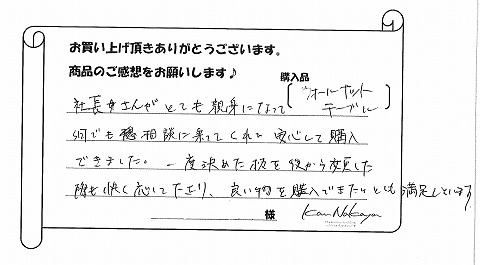 お買い上げ頂きありがとうございます。
商品のご感想をお願いします♪
購入品
ウォールナット
テーブル
社長さんが とても親身になって
何でも 相談に乗ってくれて 安心して購入
できました。 一度決めた板を後から変更した
時も快く応じて、良い物を購入できたととても満足しています
様